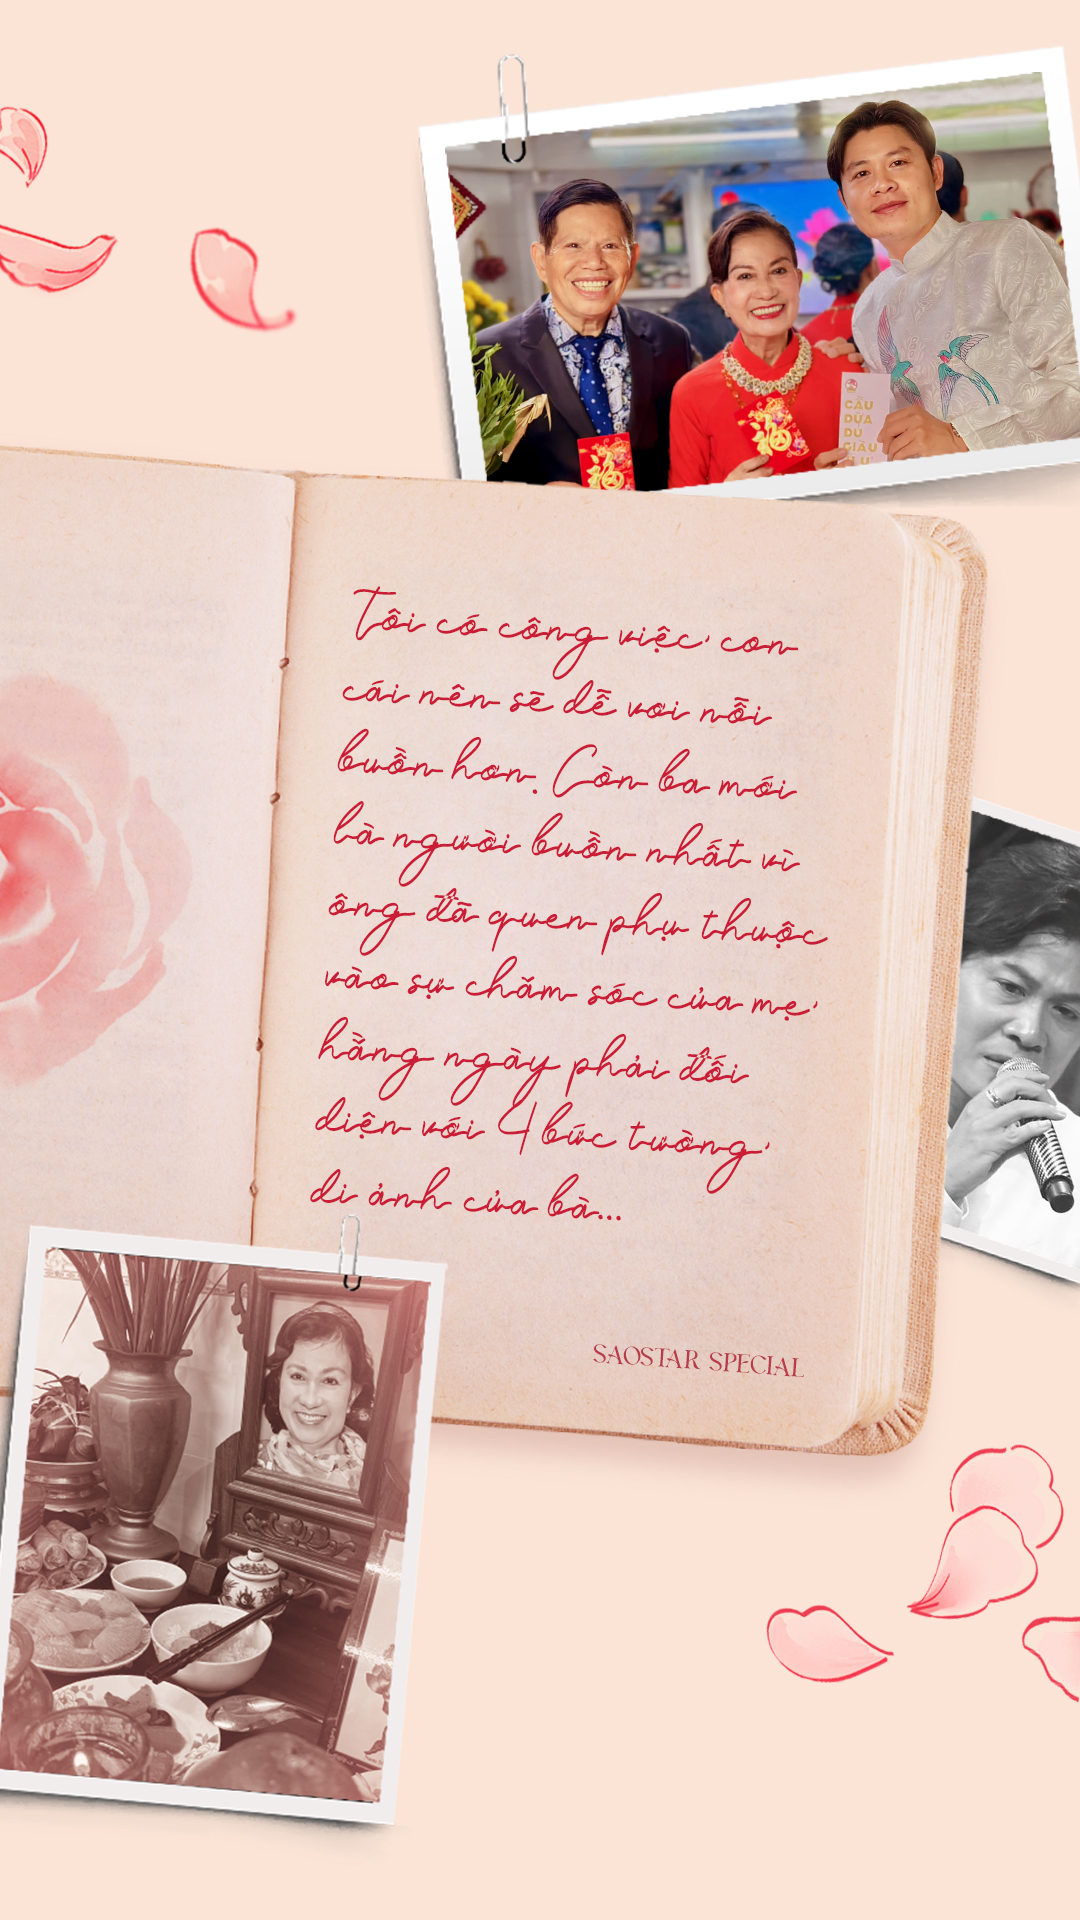 CẦU
DỪA
ĐỦ
GIÀU
福
福
Tôi có công việc, con
cái nên sẽ dễ vơi nỗi
buồn hơn. Còn ba mới
là người buồn nhất vì
ông đã quen phụ thuộc
vào sự chăm sóc của mẹ,
hằng ngày phải đối
diện với 4 bức tường,
di ảnh của bà...
SAOSTAR SPECIAL